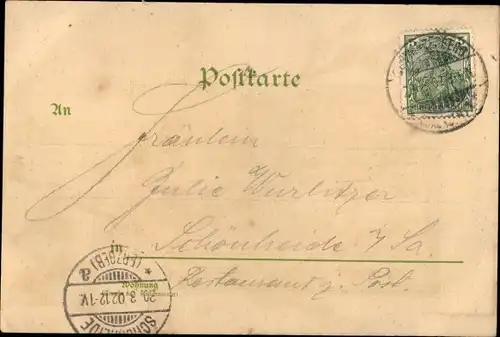 Postkarte
An
Fräulein
Julie Wurlitzer
in
Schönheide i/Sa.
Restaurant z. Post.
Wohnung
SCHÖNHEIDE
(ERZGEB) a
20.3.02.12-1V.